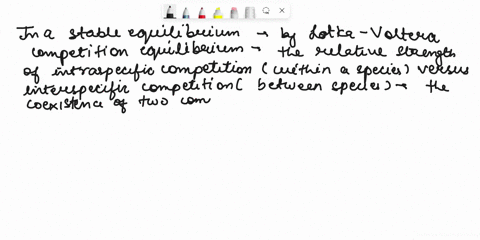 In a stable equilibrium → by Lotka-Voltera
competition equilibrium → the relative strength
of intraspecific competition (within a species) versus
interspecific competition( between species) → the
coexistence of two com